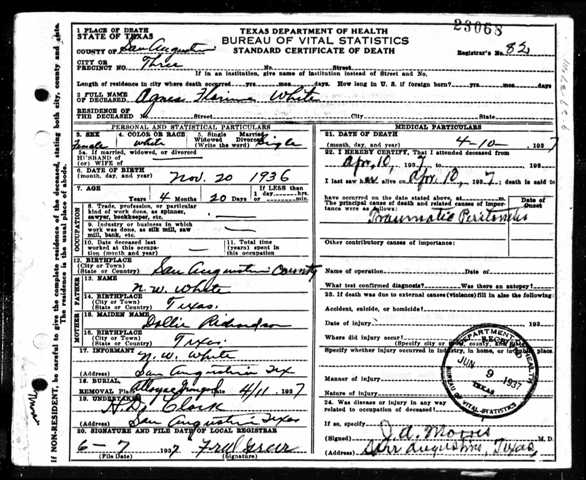 23068
TEXAS DEPARTMENT OF HEALTH
BUREAU OF VITAL STATISTICS
STANDARD CERTIFICATE OF DEATH
1 PLACE OF DEATH
STATE OF TEXAS
COUNTY OF San Augustine
Registrar's No. 82
CITY OR
PRECINCT NO. Three No. Street
If in an institution, give name of institution instead of Street and No.
Length of residence in city where death occurred yrs. mos. days. How long in U. S. if foreign born? yrs. mos. days
2 FULL NAME
OF DECEASED Agnes White
RESIDENCE OF
THE DECEASED No. Street City State
PERSONAL AND STATISTICAL PARTICULARS
3. SEX 4. COLOR OR RACE 5. Single Married
Widowed Divorced
female white Single
5a. If married, widowed, or divorced
HUSBAND OF
(or) WIFE OF
6. DATE OF BIRTH
(month, day, and year) Nov. 20 1936
7. AGE If LESS than
1 day
Years 4 Months 20 Days Hours Min.
OCCUPATION
8. Trade, profession, or particular
kind of work done, as spinner,
sawyer, bookkeeper, etc.
9. Industry or business in which
work was done, as silk mill, saw
mill, bank, etc.
10. Date deceased last
worked at this occupation
(month and year)
11. Total time
(years) spent in
this occupation
12. BIRTHPLACE
(City or Town)
(State or Country) San Augustine County
FATHER
13. NAME
N. W. White
14. BIRTHPLACE
(City or Town)
(State or Country) Texas.
MOTHER
15. MAIDEN NAME
Dollie Richardson
16. BIRTHPLACE
(City or Town)
(State or Country) Texas.
17. INFORMANT N. W. White
(Address) San Augustine Tex
18. BURIAL
REMOVAL Place Date 4/11 1937
19. UNDERTAKER
H. D. Clark
(Address) San Augustine Texas
20. SIGNATURE AND FILE DATE OF LOCAL REGISTRAR
6-7 1937 Fred Greer
(File Date) (Signature)
MEDICAL PARTICULARS
21. DATE OF DEATH
(month, day, and year) 4-10- 1937
22. I HEREBY CERTIFY, That I attended deceased from
Apr, 10, 1937, to 193
I last saw her alive on Apr, 10, 1937, death is said to
have occurred on the date stated above, at m.
The principal cause of death and related causes of importance
were as follows: Date of
Onset
Traumatic Peritonitis
Other contributory causes of importance:
Name of operation Date of
What test confirmed diagnosis? Was there an autopsy?
23. If death was due to external causes (violence) fill in also the
following:
Accident, suicide, or homicide?
Date of injury 193
Where did injury occur?
(Specify city or town, county, and State)
Specify whether injury occurred in industry, in home, or in public place.
Manner of injury
Nature of injury
24. Was disease or injury in any way
related to occupation of deceased?
If so, specify
(Signed) J. A. Morris M. D.
San Augustine, Texas,
DEPARTMENT OF HEALTH
REC'D
JUN 9 1937
TEXAS
BUREAU OF VITAL STATISTICS